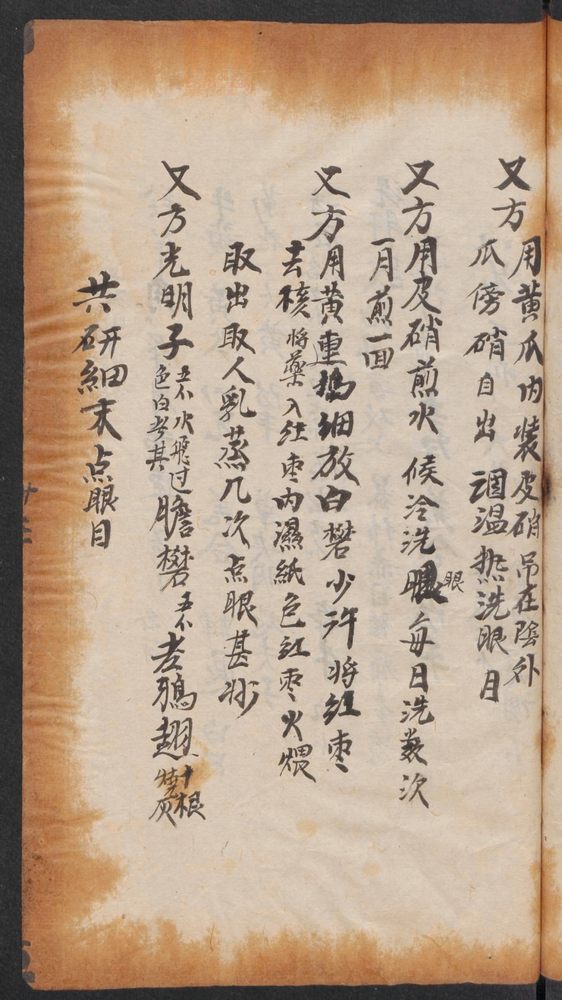 又方用黄瓜内装皮硝吊在陰外
瓜傍硝自出調温热洗眼目
又方用皮硝煎水候冷洗眼每日洗数次
一月煎一回
又方用黄連搗细放白礬少许将红枣
去核将藥入红枣内濕紙包红枣火煨
取出取人乳蒸几次点眼甚妙
又方光明子水飛过色白者其膽礬老鴉翅十根燒灰
共研細末点眼目